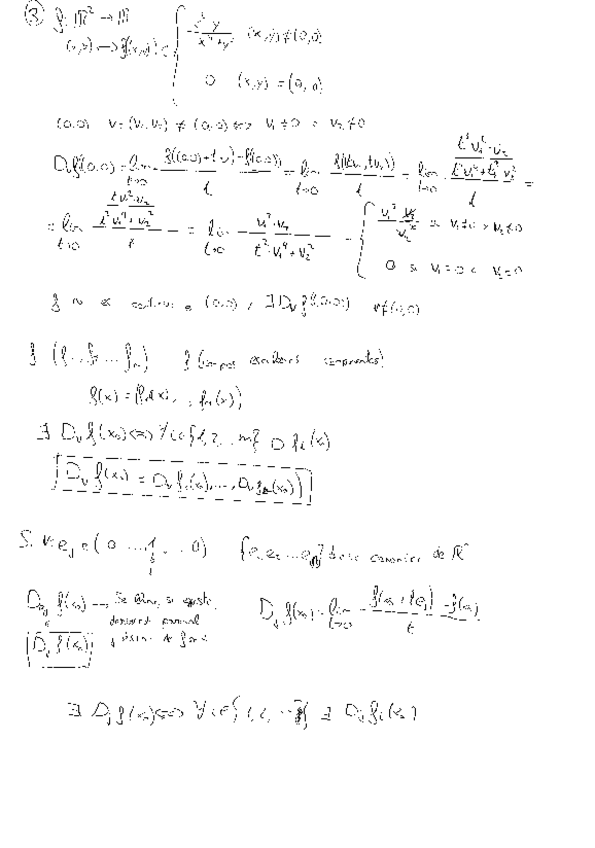 ③ f: ℝ² → ℝ
(x,y) → f(x,y) = { x²y / (x⁴+y²) (x,y) ≠ (0,0)
0 (x,y) = (0,0)
(0,0) v = (v₁,v₂) ≠ (0,0) ⇔ v₁ ≠ 0 o v₂ ≠ 0
D_v f(0,0) = lim_{t→0} (f((0,0)+t v) - f(0,0)) / t = lim_{t→0} f(tv₁,tv₂) / t = lim_{t→0} (t³v₁²·v₂ / (t⁴v₁⁴+t²v₂²)) / t =
= lim_{t→0} (t v₁²·v₂ / (t²v₁⁴+v₂²)) / t = lim_{t→0} v₁²·v₂ / (t²·v₁⁴+v₂²) = { v₁² v₂ / v₂² si v₁≠0 v₂≠0
0 si v₁=0 o v₂=0
f no es continua (0,0), ∃ D_v f(0,0) v≠(0,0)
f (f₁, f₂ ... fₘ) f (campos escalares componentes)
f(x) = (f₁(x), ..., fₘ(x))
∃ D_v f(x₀) ⇔ ∀ i ∈ {1,2,...m} D fᵢ(x₀)
D_v f(x₀) = D_v f₁(x₀), ..., D_v fₘ(x₀))
Si v = e_j = (0 ...,1, ... 0) {e₁ e₂ ... eₙ} base canónica de ℝⁿ
D_{e_j} f(x₀) → Se llama, si existe, D_j f(x₀) = lim_{t→0} (f(x₀ + t e_j) - f(x₀)) / t
derivada parcial
D_j f(x₀)
∃ D_j f(x₀) ⇔ ∀ i ∈ {1,2,...m} ∃ D_j fᵢ(x₀)